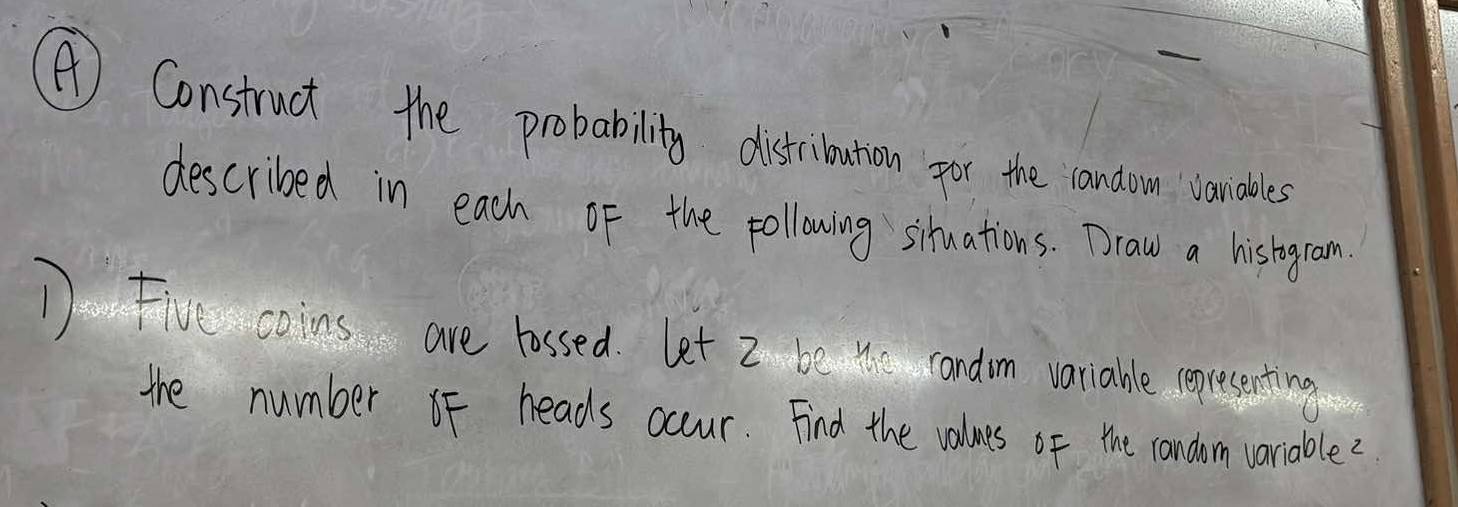 A Construct the probability distribution For the random variables
described in each OF the Following situations. Draw a histogram.
1) Five coins are tossed. Let Z be the random variable representing
the number OF heads occur. Find the values OF the random variable z.